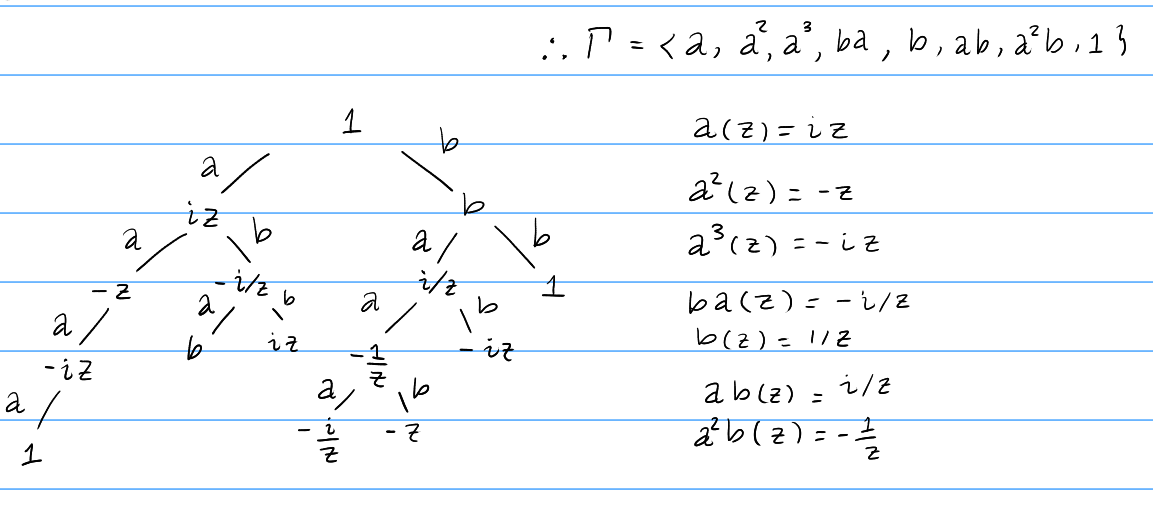 ∴ Γ = < a, a², a³, ba, b, ab, a²b, 1 }
1
a b
iz b
a b a b
-z -i/z i/z 1
a a b a b
-iz b iz -1/z -iz
a a b
1 -i/z -z
a(z) = iz
a²(z) = -z
a³(z) = -iz
ba(z) = -i/z
b(z) = 1/z
ab(z) = i/z
a²b(z) = -1/z